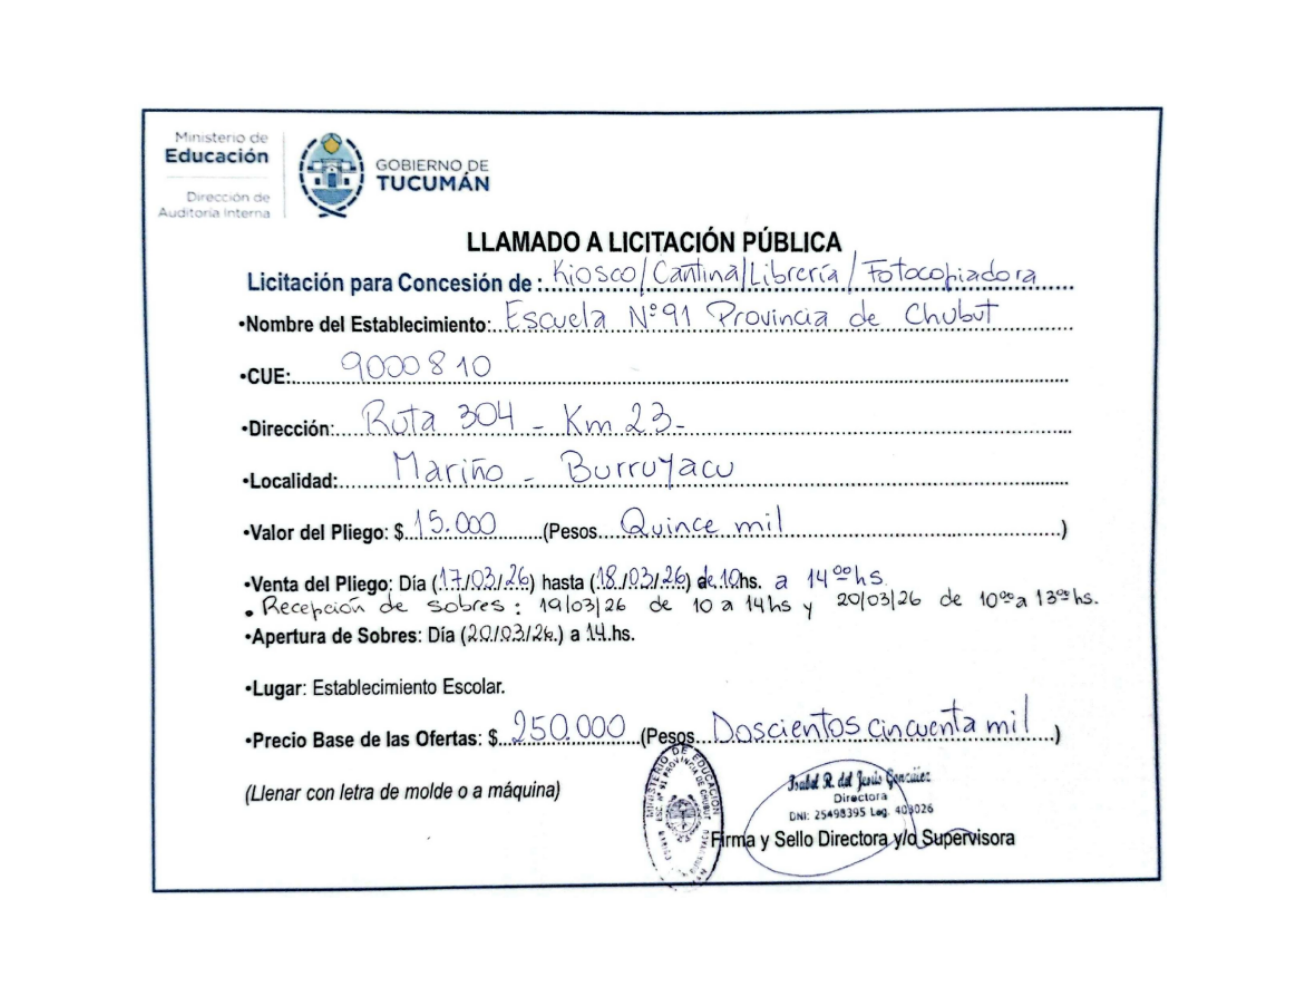 Ministerio de
Educación
Dirección de
Auditoría Interna
GOBIERNO DE
TUCUMÁN
LLAMADO A LICITACIÓN PÚBLICA
Licitación para Concesión de : Kiosco/Cantina/Librería/Fotocopiadora
•Nombre del Establecimiento: Escuela N°91 Provincia de Chubut
•CUE: 9000810
•Dirección: Ruta 304 - Km 23-
•Localidad: Mariño - Burruyacu
•Valor del Pliego: $ 15.000 (Pesos Quince mil )
•Venta del Pliego: Día (17/03/26) hasta (18/03/26) de 10hs. a 14ºº hs
• Recepción de sobres : 19/03/26 de 10 a 14hs y 20/03/26 de 10ºº a 13ºº hs.
•Apertura de Sobres: Día (20/03/26.) a 14.hs.
•Lugar: Establecimiento Escolar.
•Precio Base de las Ofertas: $ 250.000 (Pesos Doscientos cincuenta mil )
(Llenar con letra de molde o a máquina)
MINISTERIO DE EDUCACIÓN
ESC. Nº 91 PROVINCIA DE CHUBUT
Isabel R. del Jesús González
Directora
DNI: 25498395 Leg. 403026
Firma y Sello Directora y/o Supervisora